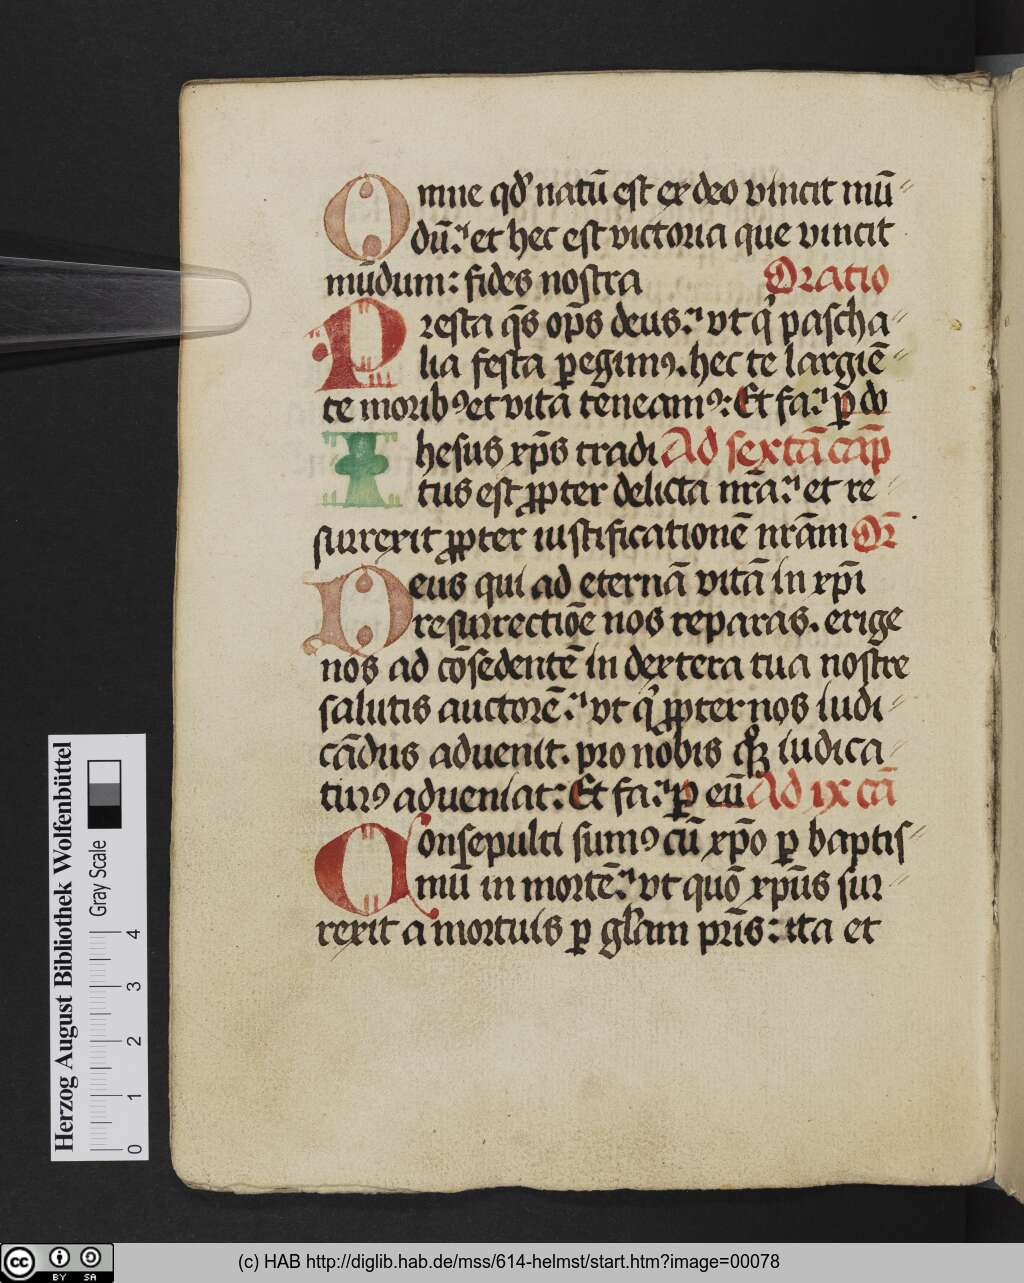 Omne qd' natū est ex deo vincit mū
dū: et hec est victoria que vincit
mūdum: fides nostra Oratio
Presta q̄s op̄s deus: vt q' pascha
lia festa ꝑegimꝰ. hec te largiē
te moribꝰ et vita teneamꝰ: Et fa: ꝑ do
Ihesus xp̄s tradi Ad sextā cap̄
tus est ꝓpter delicta nr̄a: et re
surrexit ꝓpter iustificationē nr̄am Or̄
Deus qui ad eternā vitā in xp̄i
resurrectiōe nos reparas. erige
nos ad cōsedentē in dextera tua nostre
salutis auctorē: vt q' ꝓpter nos iudi
cādus aduenit. pro nobis iudica
turꝰ adueniat: Et fa: ꝑ eū Ad ix cā
Consepulti sumꝰ cū xp̄o ꝑ baptis
mū in mortē: vt quō xp̄us sur
rexit a mortuis ꝑ gl'am pr̄is: ita et
Herzog August Bibliothek Wolfenbüttel
Gray Scale
0 1 2 3 4
cc BY SA
(c) HAB http://diglib.hab.de/mss/614-helmst/start.htm?image=00078